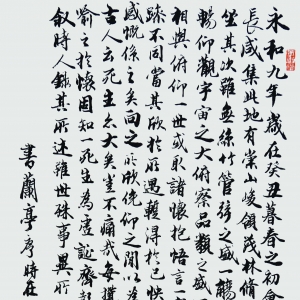 永和九年歲在癸丑暮春之初會
長咸集此地有崇山峻領茂林脩
坐其次雖無絲竹管弦之盛一觴
暢仰觀宇宙之大俯察品類之盛
相與俯仰一世或取諸懷抱悟言
殊不同當其欣於所遇暫得於己快
感慨係之矣向之所欣俛仰之間以為
古人云死生亦大矣豈不痛哉每攬
喻之於懷固知一死生為虛誕齊彭
敘時人錄其所述雖世殊事異所
書蘭亭序時在